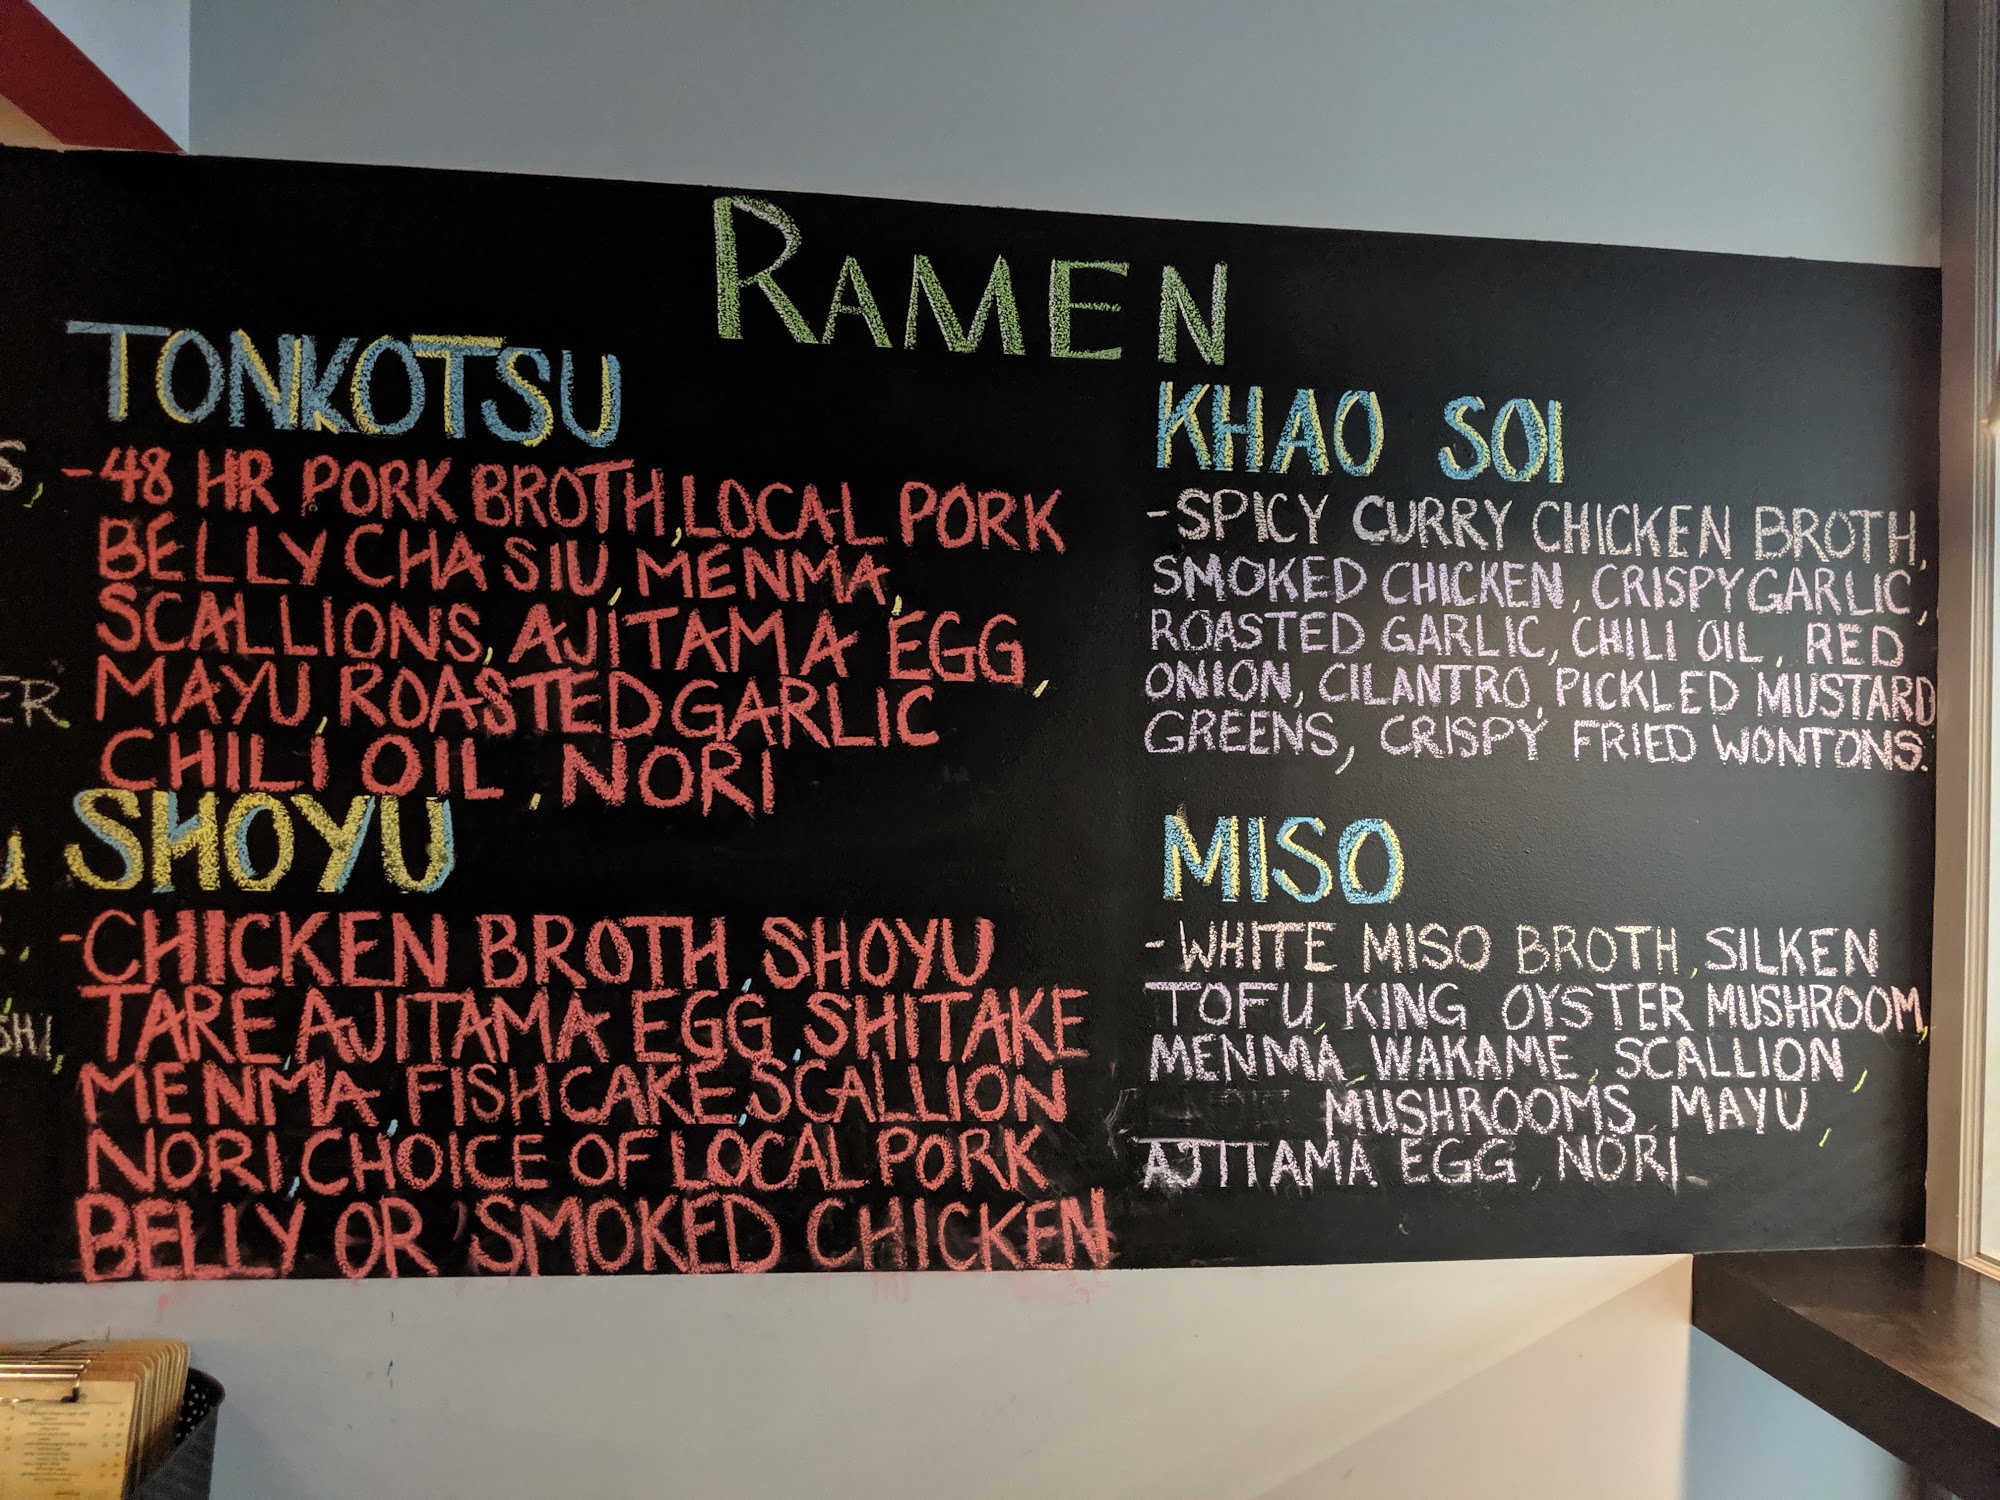 RAMEN
TONKOTSU
-48 HR PORK BROTH, LOCAL PORK
BELLY CHA SIU, MENMA,
SCALLIONS, AJITAMA EGG,
MAYU, ROASTED GARLIC
CHILI OIL, NORI
SHOYU
-CHICKEN BROTH, SHOYU
TARE, AJITAMA EGG, SHITAKE
MENMA, FISHCAKE, SCALLION
NORI, CHOICE OF LOCAL PORK
BELLY OR SMOKED CHICKEN
KHAO SOI
-SPICY CURRY CHICKEN BROTH,
SMOKED CHICKEN, CRISPY GARLIC,
ROASTED GARLIC, CHILI OIL, RED
ONION, CILANTRO, PICKLED MUSTARD
GREENS, CRISPY FRIED WONTONS.
MISO
-WHITE MISO BROTH, SILKEN
TOFU, KING OYSTER MUSHROOM,
MENMA, WAKAME, SCALLION,
MUSHROOMS, MAYU,
AJITAMA EGG, NORI